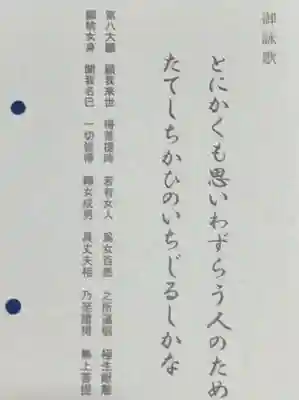 御詠歌
とにかくも思いわずらう人のため
たてしちかひのいちじるしかな
第八大願 願我来世 得菩提時 若有女人 為女百悪 之所逼惱 極生厭離
願捨女身 聞我名已 一切皆得 轉女成男 具丈夫相 乃至證得 無上菩提